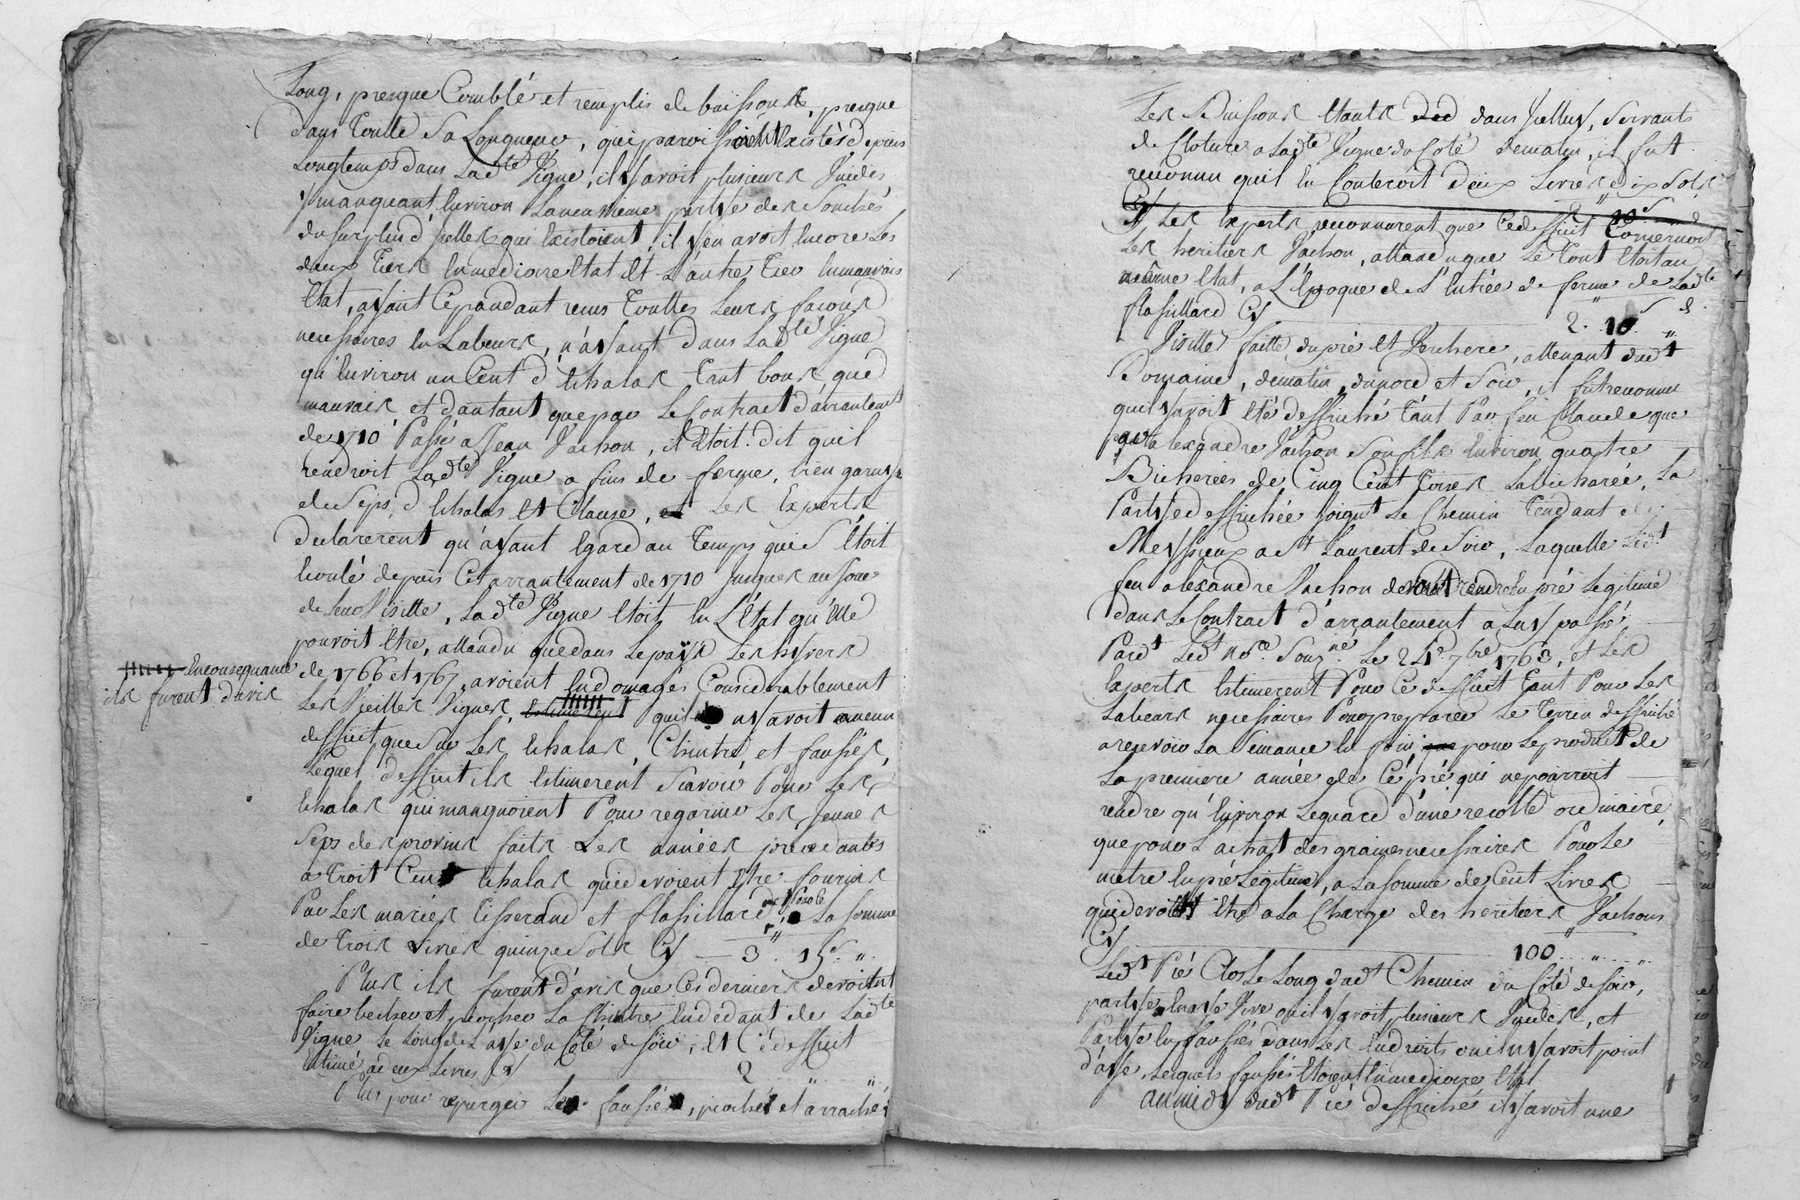 Long, presque Comblé et remplis de buissons, presque
dans Toutte Sa Longueur, qui paroissoient Existés depuis
Longtemps dans Ladte Vigne, il y avoit plusieurs Vuides
y manquant Environ La neuvieme partye des Souches
du surplus d'jcelles qui Existoient, il y en avoit Encore Les
deux Tiers En mediocre Etat Et L'autre Tier En mauvais
Etat, ayant Cépandant reçus Touttes Leurs façons
necessaires En Labeurs, n'ayant dans Ladte Vigne
qu'Environ un Cent d'Echalas Tant bons que
mauvais et d'autant que par Le Contract d'arrantement
de 1710 Passé a Jean Vachon, il Etoit dit quil
rendroit Ladte Vigne a fins de ferme, bien garnye
de Seps, d'Echalas Et Clause, Les Experts
Declarerent qu'ayant Egard au Temps qui S'Etoit
Ecoulé depuis Cet arrantement de 1710 jusques au jour
de leur Visitte, Ladte Vigne Etoit En L'Etat qu'Elle
pouvoit Etre, attandu que dans Le païs Les hyvers
de 1766 et 1767, avoient Endomagés Considerablement
Les Vieilles Vignes, quil ny avoit aucun
Enconsequance
ils furent d'avis
defficit que Sur Les Echalas, Chintre et fausses,
Lequel defficit ils Estimerent Scavoir Pour Les
Echalas qui manquoient Pour regarnir Les jeunes
Seps des provins faits Les années précedantes
a Troit Cent Echalas qui devoient Etre fournis
Par Les mariés Tisserand et flassillard, a La somme
de Trois Livres quinze Sols Cy 3 . 15s "
Plus ils furent d'avis que Ces derniers devoient
faire becher et piocher La Chintre En dedant de Ladte
Vigne Le Long de L'aye du Coté de soir, Et Cé defficit
Estimé a deux Livres Cy 2 " "
Plus pour repurger Les fausses, piocher et arracher
Les Buissons Etants dans jcelles, Servants
de Cloture a Ladte Vigne du Coté de matin, il fut
reconnu quil En Couteroit deux Livres dix Sols
Cy 2 10s
Les Experts reconnurent que Ce defficit Concernoit
Les heritiers Vachon, attandu que Le Tout Etoit au
même Etat, a L'Epoque de L'Entrée de ferme de Ladte
flassillard Cy 2 . 10s "
Visitte faitte du pré Et Verchere, attenant dudt
Domaine, de matin, du nord et Soir, il fut reconnu
quil y avoit Eté deffriché Tant Par feu Claude que
par alexandre Vachon Son fils Environ quatre
Bicherées de Cinq Cent Toises La bicharée, La
Partye deffrichée joignt Le Chemin Tendant de
Messieux a St Laurent de Soir, Laquelle Ledt
feu alexandre Vachon devoit rendre En pré Legitime
dans Le Contract d'arrantement a Luy passé
Pardt Ledt Nore Souzné Le 24e 7bre 1763, et Les
Experts Estimerent Pour Ce defficit Tant Pour Les
Labeurs necessaires Pour preparer Le Terrein deffriché
a recevoir La Semance En foin pour Le produit de
La premiere année de Cé pré qui ne pourroit
rendre qu'Environ Lequard d'une recolte ordinaire,
que pour L'achat des graines necessaires Pour Le
mettre En pré Legitime, a La somme de Cent Livres
qui devoit Etre a La Charge des heritiers Vachons
Cy 100 " "
Ledt Pré Clos Le Long dudt Chemin du Coté de soir,
partye En aye Vive ou il y avoit plusieurs Vuides, et
Partye En fausses dans Les Endroits ou il ny avoit point
d'aye, Lequels fausses Etoient En mediocre Etat
au midy dudt Pré deffriché il y avoit une